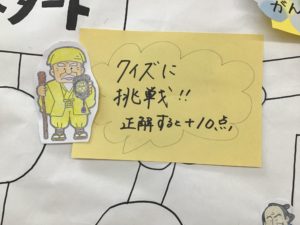 スタート
がん
クイズに
挑戦!!
正解すると+10点